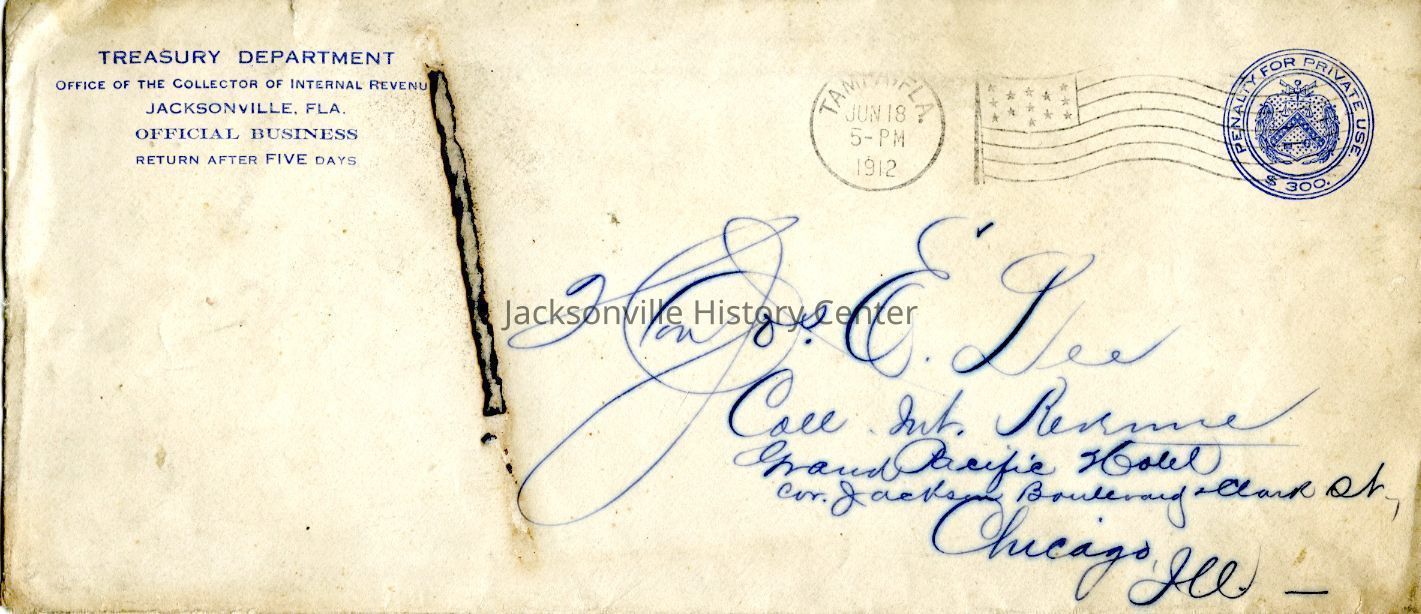 TREASURY DEPARTMENT
OFFICE OF THE COLLECTOR OF INTERNAL REVENU
JACKSONVILLE, FLA.
OFFICIAL BUSINESS
RETURN AFTER FIVE DAYS
TAMPA, FLA.
JUN 18
5-PM
1912
PENALTY FOR PRIVATE USE
$ 300.
Jacksonville History Center
Hon Jos. E. Lee
Coll. Int. Revenue
Grand Pacific Hotel
Cor. Jackson Boulevard & Clark St.,
Chicago,
Ill. —